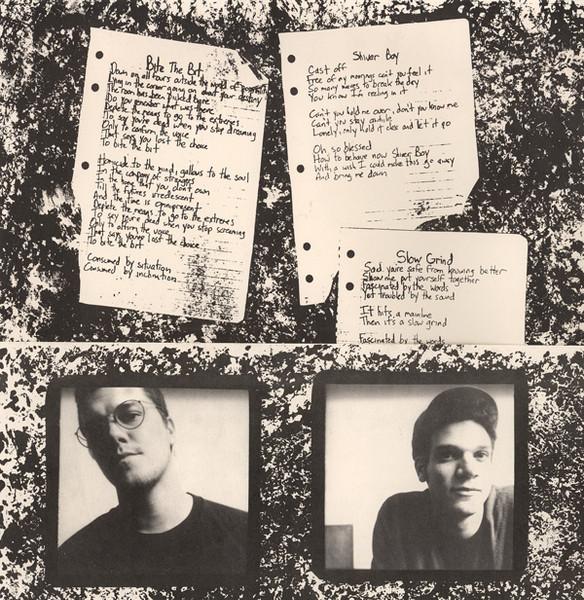 Bite The Bit
Down on all fours outside the world of
in the corner on
The room has been
Do you remember your time there
the means to go to the extremes
To say you're dead when you stop dreaming
Only to confirm the voice
once you lost the choice
To bite the bit
to the mind, gallows to the soul
In the company of strangers
that you don't own
Till the irredescent
And the time is omnipresent
the means to go to the extremes
To say you're dead when you stop screaming
Only to affirm the voice
once you've lost the choice
To bite the bit
Consumed by situation
Consumed by inclination
Shiver Boy
Cast off
Free of my mornings can't you feel it
So many ways to break the day
You know I'm reeling in it
Can't you hold me over, don't you know me
Can't you stay awhile
Lonely, only hold it close and let it go
Oh so blessed
How to behave now Shiver Boy
With a wish I could make this go away
And bring me down
Slow Grind
Said you're safe from knowing better
you put yourself together
Fascinated by the words
Not troubled by the sound
It hits a mainline
Then it's a slow grind
Fascinated by the words